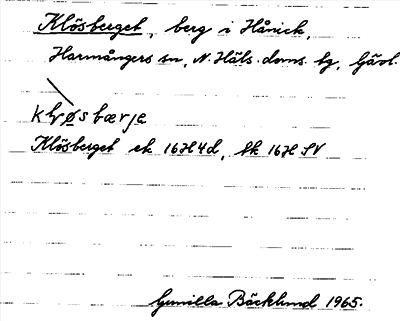 Klösberget, berg i Hånick,
Harmångers sn, N. Häls. doms. tg, Gävl.
Klösberget ek 16H4d, tk 16H SV
Gunilla Bäcklund 1965.